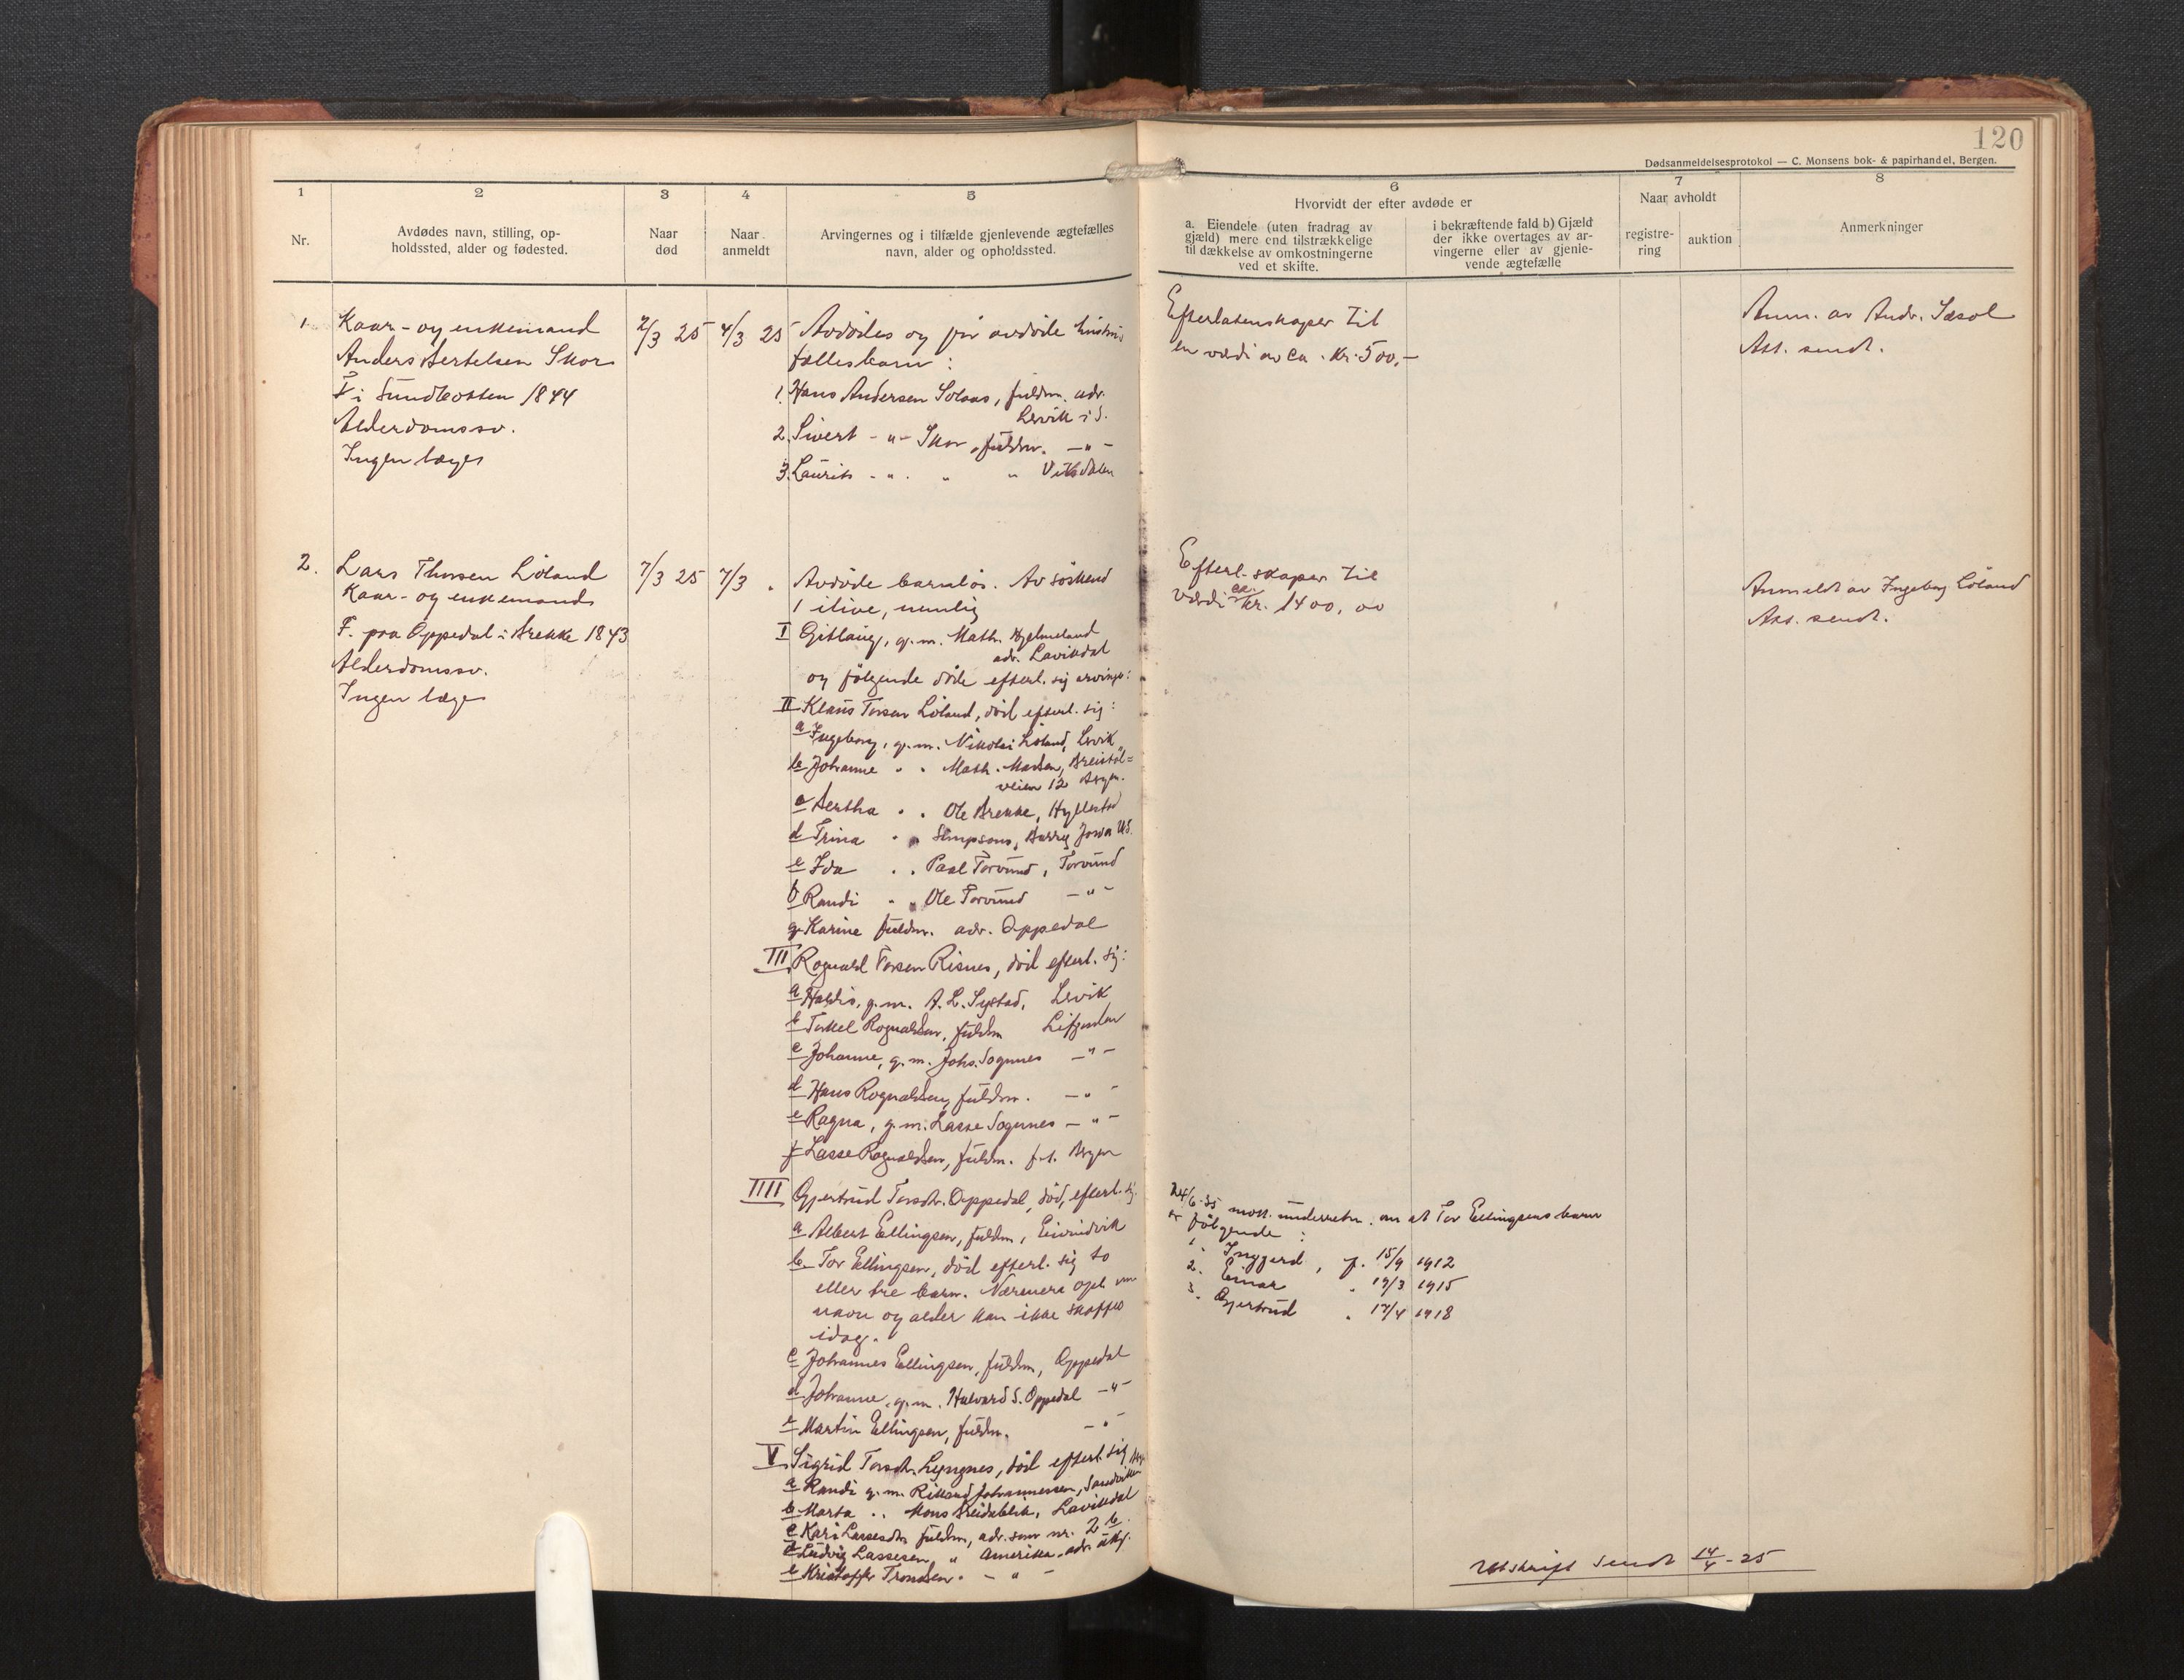 120
Dødsanmeldelsesprotokol — C. Monsens bok- & papirhandel, Bergen.
1
2
3
4
5
6
7
8
Nr.
Avdødes navn, stilling, op-
holdssted, alder og fødested.
Naar
død
Naar
anmeldt
Arvingernes og i tilfælde gjenlevende ægtefælles
navn, alder og opholdssted.
Hvorvidt der efter avdøde er
a. Eiendele (uten fradrag av
gjæld) mere end tilstrækkelige
til dækkelse av omkostningerne
ved et skifte.
i bekræftende fald b) Gjæld
der ikke overtages av ar-
vingerne eller av gjenle-
vende ægtefælle
Naar avholdt
registre-
ring
auktion
Anmerkninger
1
Kaar- og enkemand
Anders Bertelsen Skor
F i Sundbotten 1844
Alderdomssv.
Ingen læge
2/3 25
4/3 25
Avdødes og før avdøde hustrus
fællesbarn:
1. Hans Andersen Solaas, fuldm. adr.
Lervik i S.
2. Sivert -"- Skor, fuldm. -"-
3. Laurits - " - " " Viksdalen
Efterlatenskaper til
en værdi av ca. Kr. 500,-
Anm. av Andr.
Att. sendt.
2.
Lars Thorsen Løland
Kaar- og enkemand
F. paa Oppedal i Brekke 1843
Alderdomssv.
Ingen læge
7/3 25
7/3 "
Avdøde barnløs. Av søskend
1 ilive, nemlig
I Gitlaug, g.m. Math. Hjelmeland
adr. Lavikdal
og følgende døde efterl. sig arvinger:
II Klaus Torsen Løland, død efterl. sig:
a Ingeborg, g.m. Nikolai Løland, Lervik
b Johanne " " Math. Madsen, Breistøl=
veien 12 Bergen.
c Bertha " " Ole Brekke, Hyllestad
d Trina " " Simpsons, Iowa U.S.
e Ida " " Paal Torvund, Torvund
f Randi " " Ole Torvund -"-
g Karine fuldm. adr. Oppedal
III Rognald Torsen Risnes, død efterl. sig:
a Haldis, g.m. A. L. Systad, Lervik
b Torkel Rognaldsen, fuldm Lifjorden
c Johanne, g.m. Johs. Sognnes -"-
d Hans Rognaldsen, fuldm. -"-
e Ragna, g.m. Lasse Sognnes -"-
f Lasse Rognaldsen, fuldm. f.t. Bergen
IIII Gjertrud Torsdtr. Oppedal, død, efterl. sig
a Albert Ellingsen, fuldm, Eivindvik
b. Tor Ellingsen, død efterl. sig to
eller tre barn. Nærmere opl om
navn og alder kan ikke skaffes
idag.
c Johannes Ellingsen, fuldm, Oppedal
d Johanne, g.m. Halvard S. Oppedal -"-
e Martin Ellingsen, fuldm. -"-
V Sigrid Torsdtr. Lyngnes, død efterl. sig
a Randi g.m. Rikard Johannessen, Sandviken
b Marta " " Mons Breidablik, Lavikdal
c Kari Lassesdtr fuldm, adr. som nr. 2 b.
d Ludvig Lassesen, " Amerika, adr. ukj.
e Kristoffer Tronsen " - " -
Efterl.skaper til
værdi ca. kr. 1400,00
Anmeldt av Ingeborg Løland
Att. sendt.
24/6-35 mott. underretn. om at Tor Ellingsens barn
er følgende:
1. Inggjerd, f. 15/9 1912
2. Einar " 19/3 1915
3. Gjertrud " 17/4 1918
Utskrift sendt 14/4-25